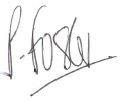 P. Foster.